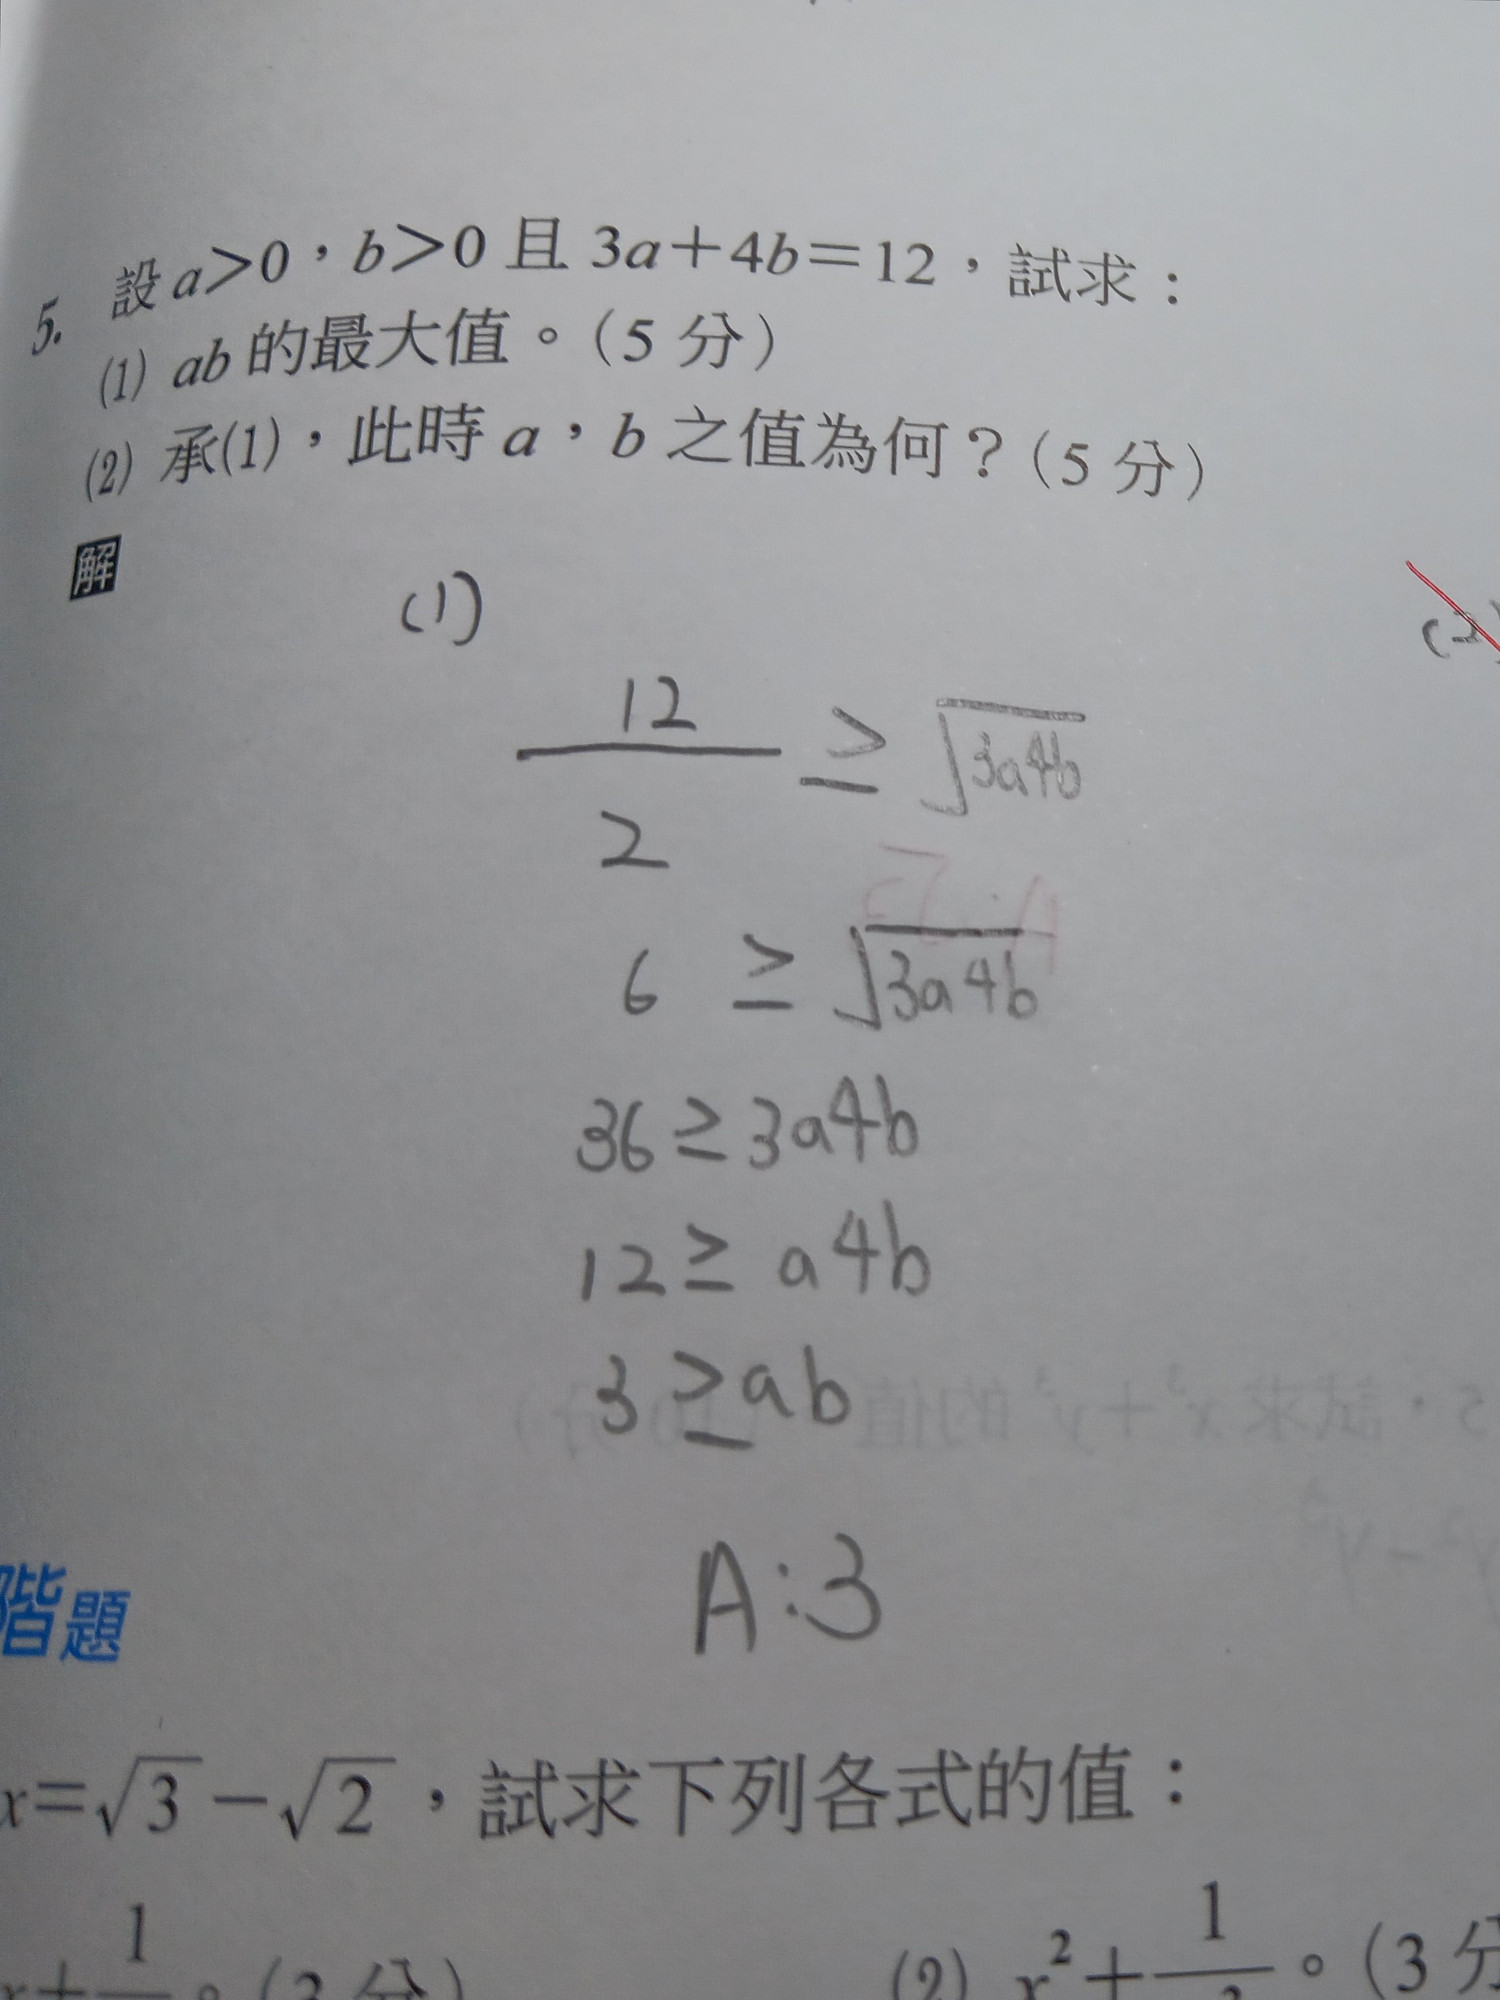 5. 設 a>0，b>0 且 3a+4b=12，試求：
(1) ab 的最大值。(5 分)
(2) 承(1)，此時 a，b 之值為何？(5 分)
解
(1)
(2)
12/2 ≥ √3a4b
6 ≥ √3a4b
36 ≥ 3a4b
12 ≥ a4b
3 ≥ ab
A:3
階題
x=√3-√2，試求下列各式的值：
(2) x²+1
。(3 分